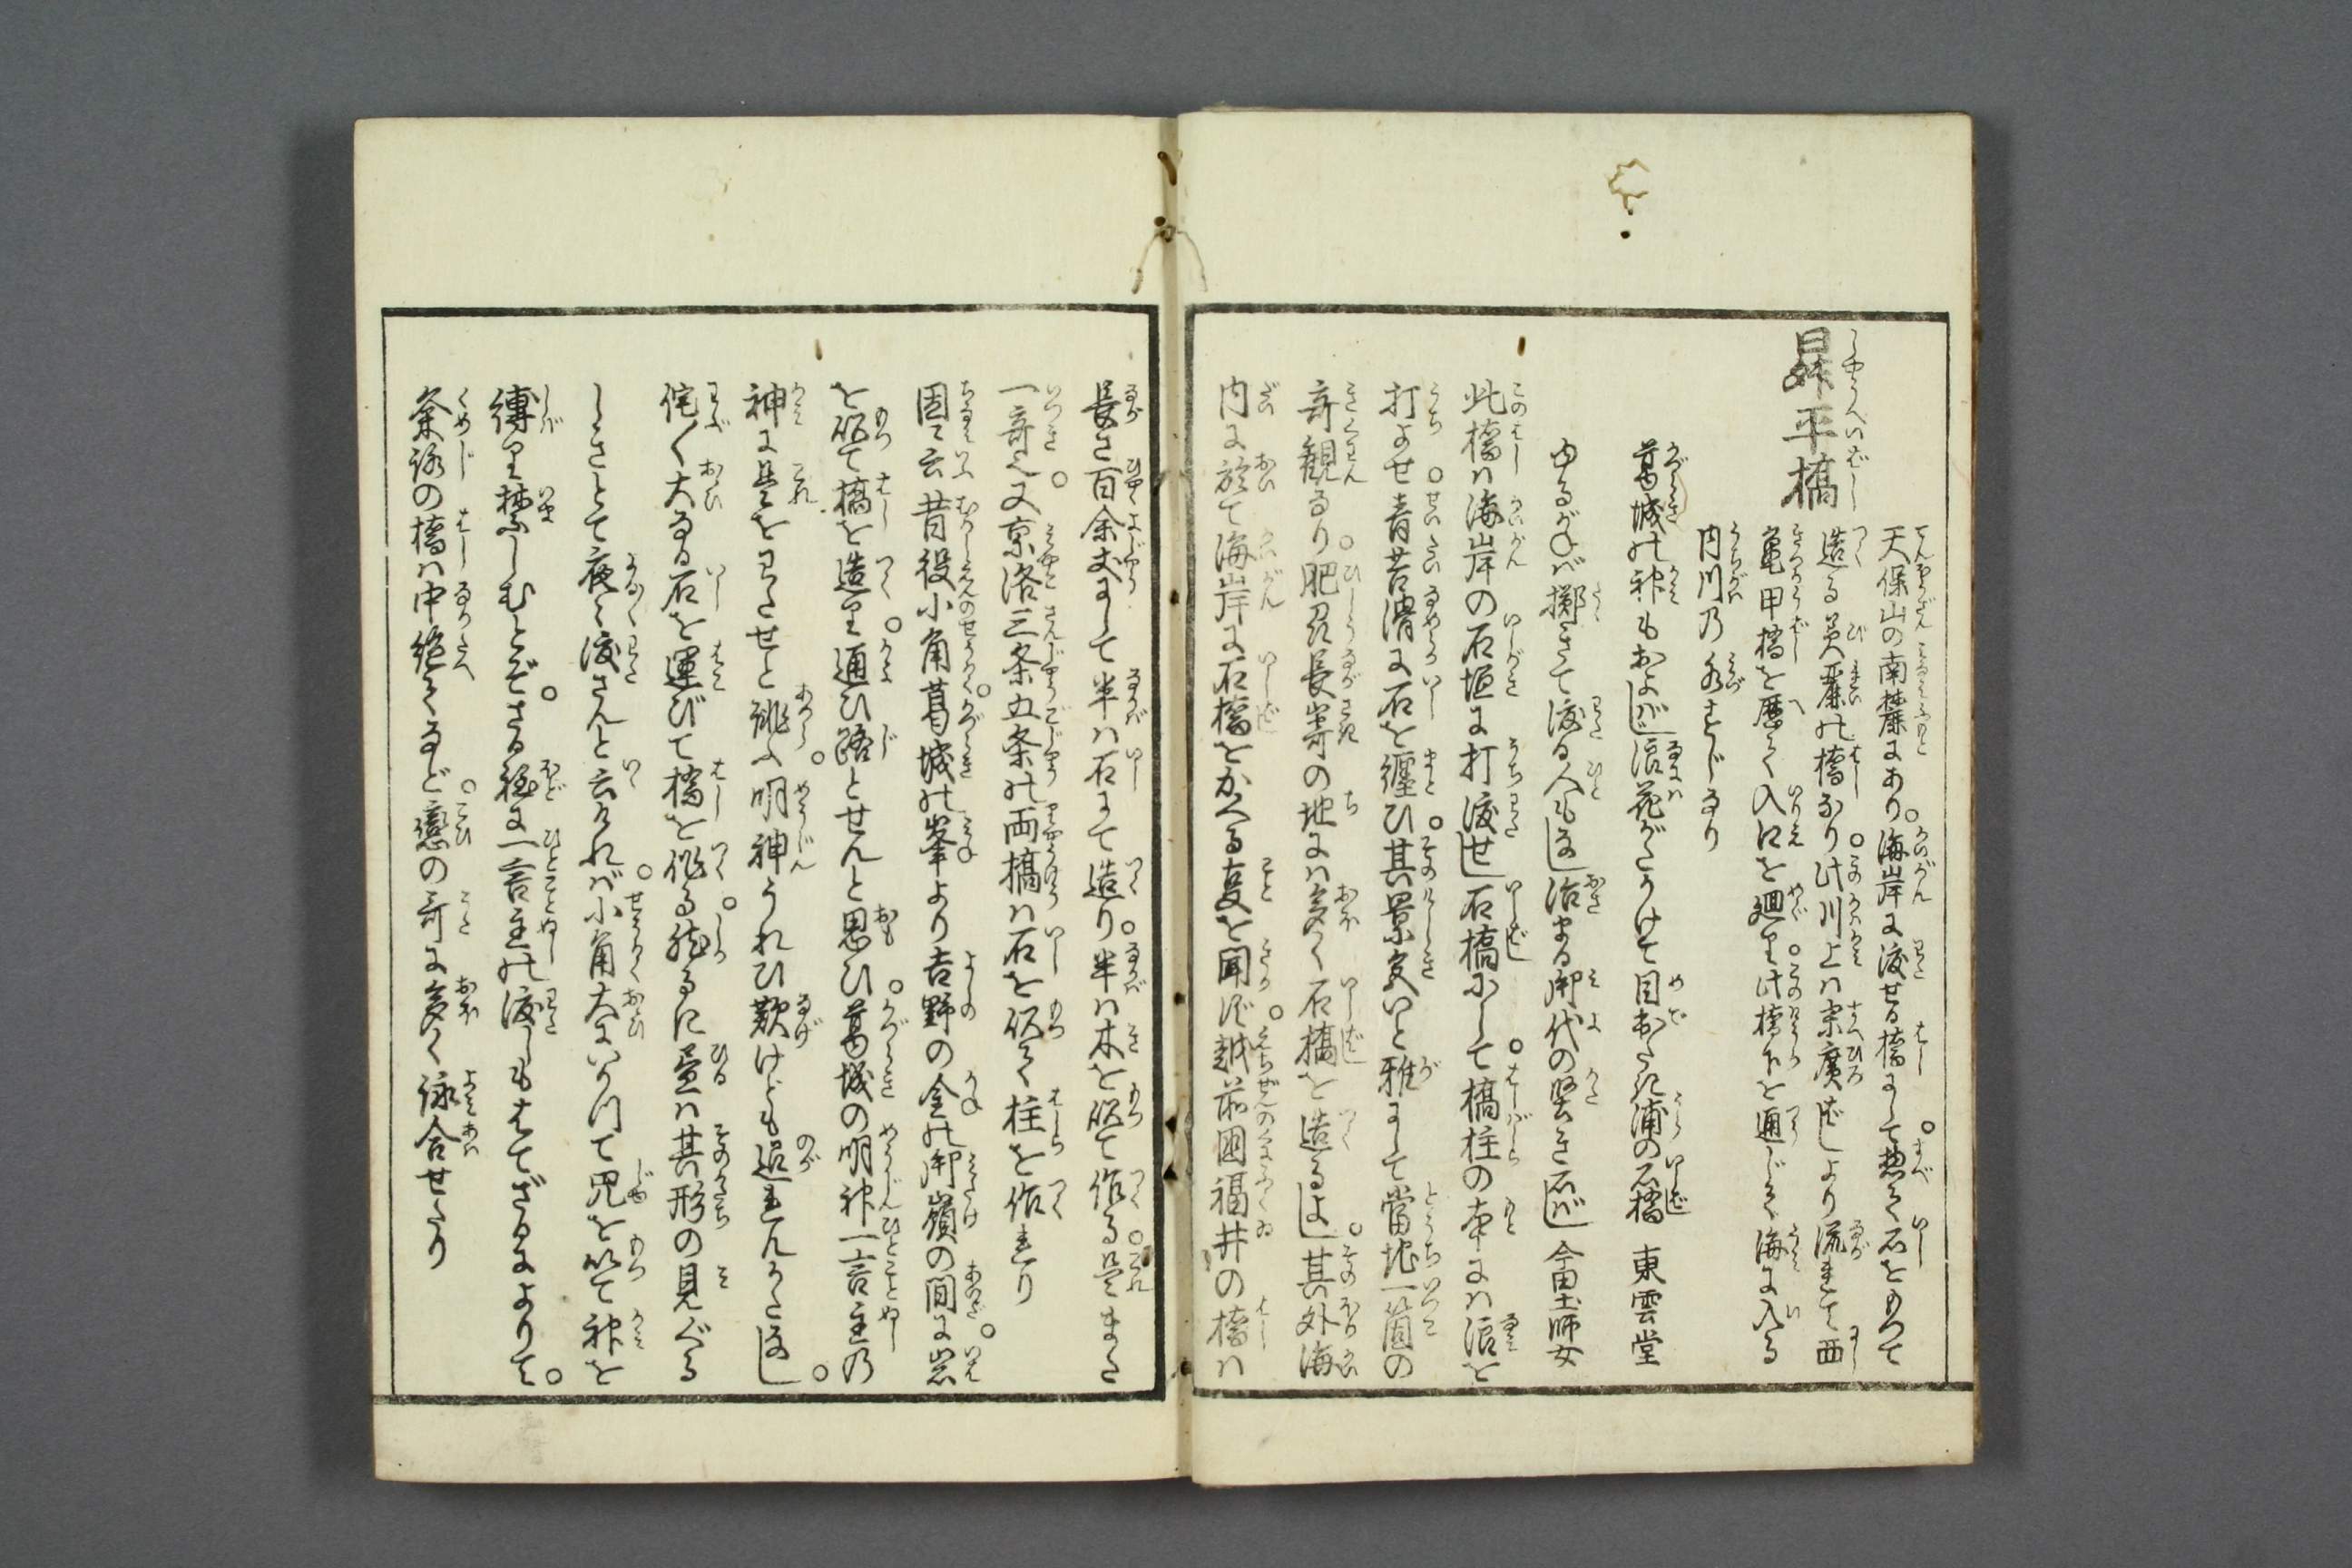 昇平橋
天保山の南麓にあり。海岸に渡せる橋にして惣て石をもつて
造る美麗の橋なり。此川上は末廣ばしより流れて西
亀甲橋を歴て入江を廻り。此橋下を通じて海に入る
内川乃水すじなり
葛城の神もおよばじ浪花がたかけて目出たき浦の石橋 東雲堂
ゆるがねば擲きて渡る人もなし治まる御代の堅き石ばし 今田土師女
此橋は海岸の石垣に打渡せし石橋にして。橋柱の本には浪を
打よせ。青苔滑に石を纏ひ。其景色いと雅にして當地一箇の
奇観なり。肥前長崎の地には多く石橋を造るよし。其外海
内に於て海岸に石橋をかくる事を聞ず。越前国福井の橋は
長さ百余丈にして半は石にて造り。半は木を以て作る。是また
一奇也。又京洛三条五条の両橋は石を以て柱を作れり
因に云昔役小角。葛城の峯より吉野の金の御嶺の間に。岩
を以て橋を造り。通ひ路とせんと思ひ。葛城の明神一言主乃
神に是をわたせと誂ふ。明神うれひ歎けども遁れんかたなし。
侘て大なる石を運びて橋を作る。然るに昼は其形の見ぐる
しきとて夜々渡さんと云ければ。小角大にいかつて咒を以て神を
縛り禁しむとぞ。さる程に一言主の渡しもはてざるによりて。
久米路の橋は中絶てなど。戀の哥に多く詠合せたり